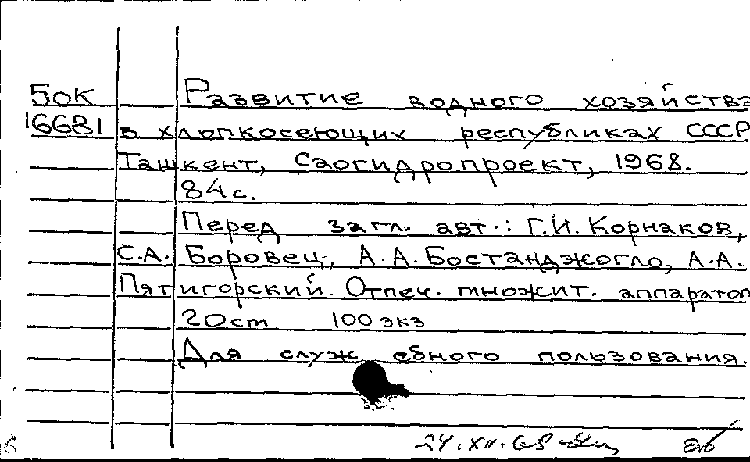 БОК Развитие водного хозяйства
16681 в хлопкосеющих республиках СССР
Ташкент, Саогидропроект, 1968.
84 с.
Перед загл. авт.: Г.И. Корнаков,
С.А. Боровец, А.А. Бостанджогло, А.А.
Пятигорский. Отпеч. множит. аппаратом
20 см 100 экз
Для служебного пользования.
24.XII.68